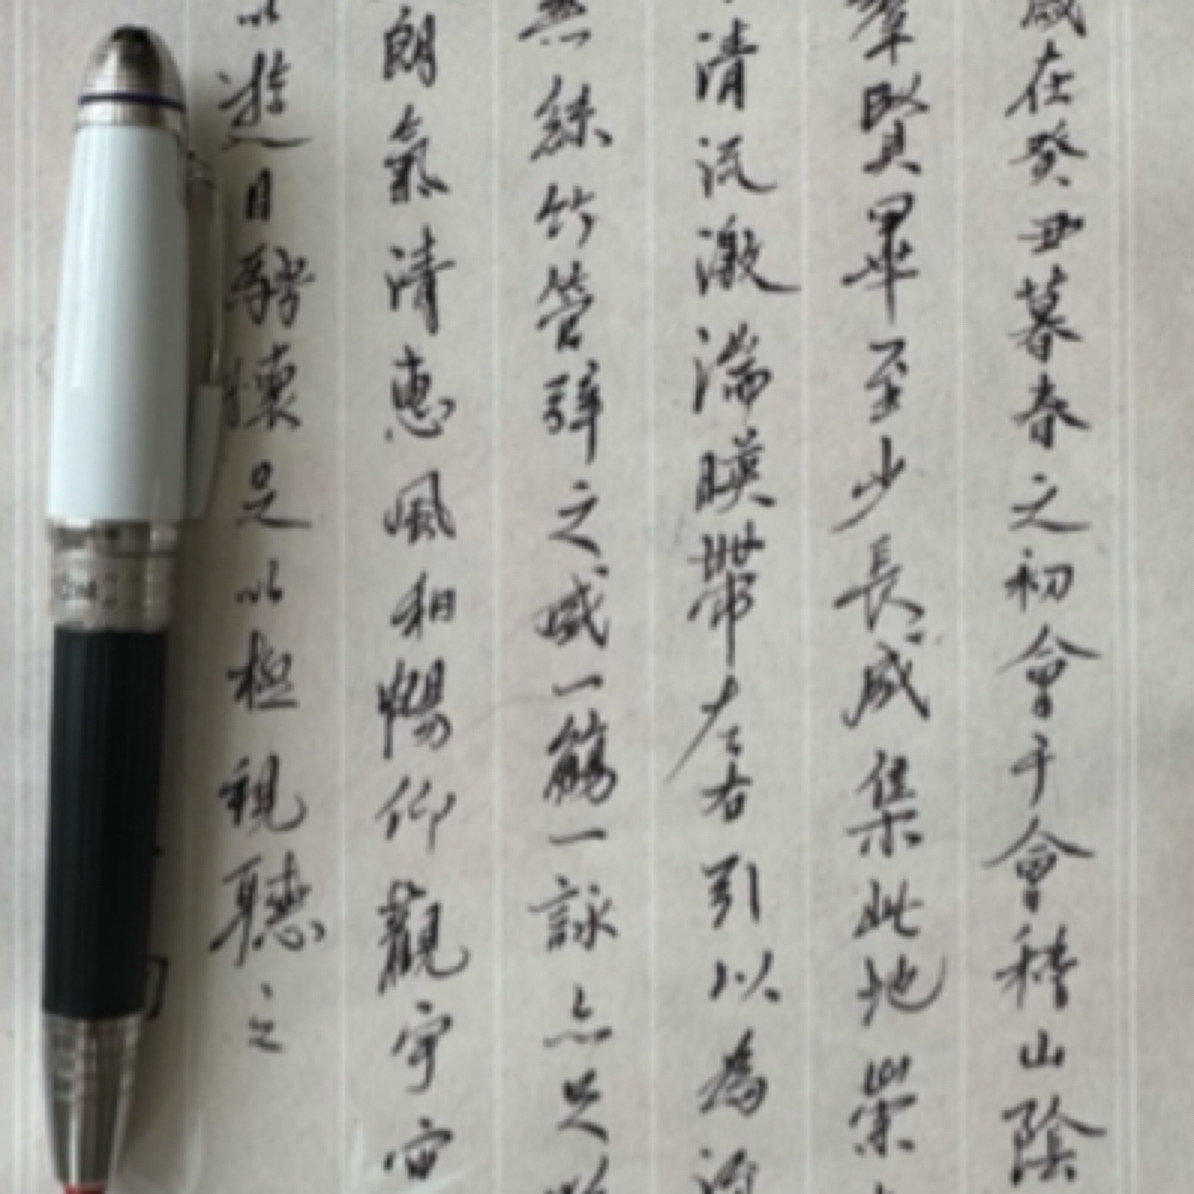 歲在癸丑暮春之初會于會稽山陰
羣賢畢至少長咸集此地崇
清流激湍暎帶左右引以為流
無絲竹管弦之盛一觴一詠亦足
朗氣清惠風和暢仰觀宇宙
以遊目騁懷足以極視聽之